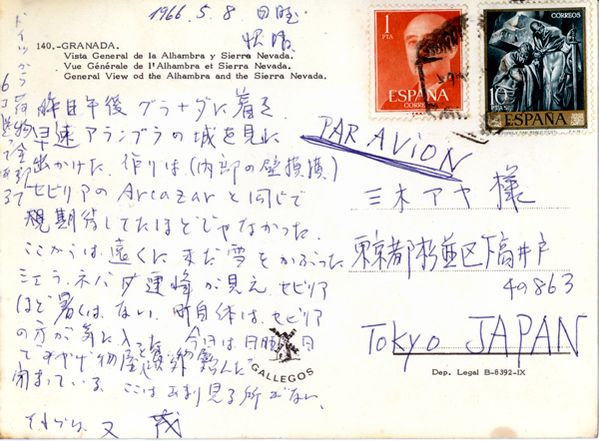 1966.5.8. 日曜
快晴
140.-GRANADA.
Vista General de la Alhambra y Sierra Nevada.
Vue Générale de l'Alhambra et Sierra Nevada.
General View od the Alhambra and the Sierra Nevada.
昨日午後 グラナダに着き、
早速アランブラの城を見に
出かけた。作りは(内部の壁模様)
セビリアの Arcazar と同じで
期待してたほどじゃなかった。
ここからは、遠くに まだ雪をかぶった
シエラ・ネバダ連峰が見え、セビリア
ほど暑くはない。町自体は、セビリア
の方が気に入った。今日は日曜日
で
閉まっている。ここはあまり見る所がない。
それでは 又
ドイツから荷物全部
6コ送ってある
1
PTA
CORREOS
ESPAÑA
CORREOS
10
PTAS
ESPAÑA
PAR AVION
三木アヤ 様
東京都杉並区下高井戸
4の863
Tokyo JAPAN
GALLEGOS
Dep. Legal B-8392-IX